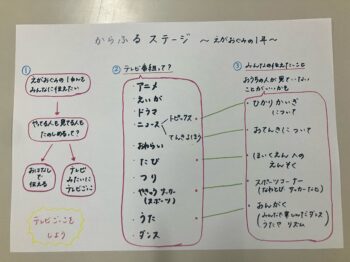 からふる ステージ ～えがおぐみの1年～
①
えがおぐみの1年を
みんなに伝えたい
やってる人も見てる人も
たのしめるって？
おはなしで
伝える
テレビ
みたいに
テレビごっこ
テレビごっこを
しよう
② テレビ番組って？
アニメ
えいが
ドラマ
ニュース
トピックス
てんきよほう
おわらい
たび
つり
やきゅう サッカー
(スポーツ)
うた
ダンス
③ みんなの伝えたいこと
おうちの人が見ていない
ことがいいかも
ひかりかいぎ
について
おてんきについて
ほいくえんへの
えんそく
スポーツコーナー
(なわとび サッカーなど)
おんがく
(みんなで楽しんだダンス
うたで リズム)